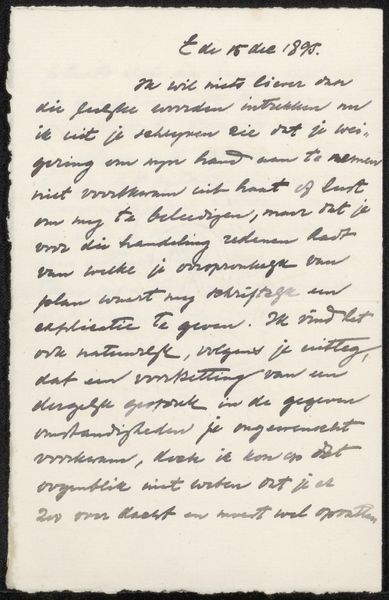 Ede 15 dec 1895.
Ik wil niets liever dan
die leelyke woorden intrekken nu
ik uit je schryven zie dat je wei-
gering om myn hand aan te nemen
niet voortkwam uit haat of lust
om my te beleedigen, maar dat je
voor die handeling redenen hadt
van welke je oorspronkelyk van
plan waart my schriftelyk een
explicatie te geven. Ik vind het
ook natuurlyk, volgens je uitleg,
dat een voortzetting van een
dergelyk gesprek in de gegeven
omstandigheden je ongewenscht
voorkwam, doch ik kon op dat
oogenblik niet weten dat je er
zoo over dacht en moest wel opvatten